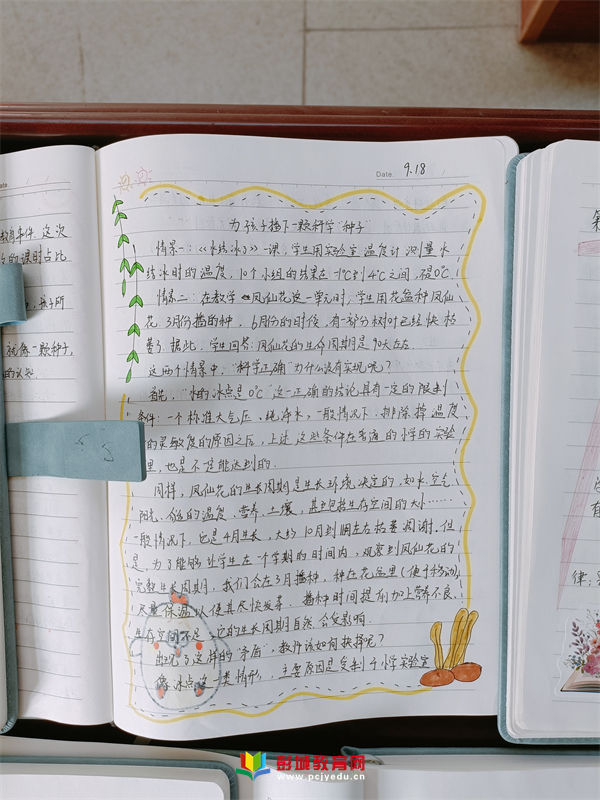 Date.
9.18
为孩子播下一颗科学"种子"
情景一:《水结冰了》一课,学生用实验室温度计测量水
结冰时的温度,10个小组的结果在-1℃到4℃之间,不是0℃.
情景二:在教学《凤仙花》这一单元时,学生用花盆种凤仙
花,3月份播的种,6月份的时候,有一部分植株已经快枯
萎了.据此,学生回答:凤仙花的生命周期是90天左右.
这两个情景中,"科学正确"为什么没有实现呢?
首先,"水的冰点是0℃"这一正确的结论具有一定的限制
条件:一个标准大气压、纯净水,一般情况下,排除掉温度
的灵敏度的原因之后,上述这些条件在普通的小学的实验
里,也是不可能达到的.
同样,凤仙花的生长周期是生长环境决定的,如水、空气
阳光、合适的温度、营养、土壤,甚至包括生存空间的大小……
一般情况下,它是4月生长,大约10月到 左右枯萎凋谢.但
是,为了能够让学生在一个学期的时间内,观察到凤仙花的
完整生长周期,我们会在3月播种,种在花盆里(便于移动),
尽量保温以使其尽快发芽.播种时间提前加上营养不良、
生存空间不足,它的生长周期自然会受影响.
出现了这样的"矛盾",教师该如何抉择呢?
像"冰点"这一类情形,主要原因是受制于小学实验室
教育事件.这次
的课时占比
孩子所
就像一颗种子,
的认知
律,
彭城教育网
www.pcjyedu.cn